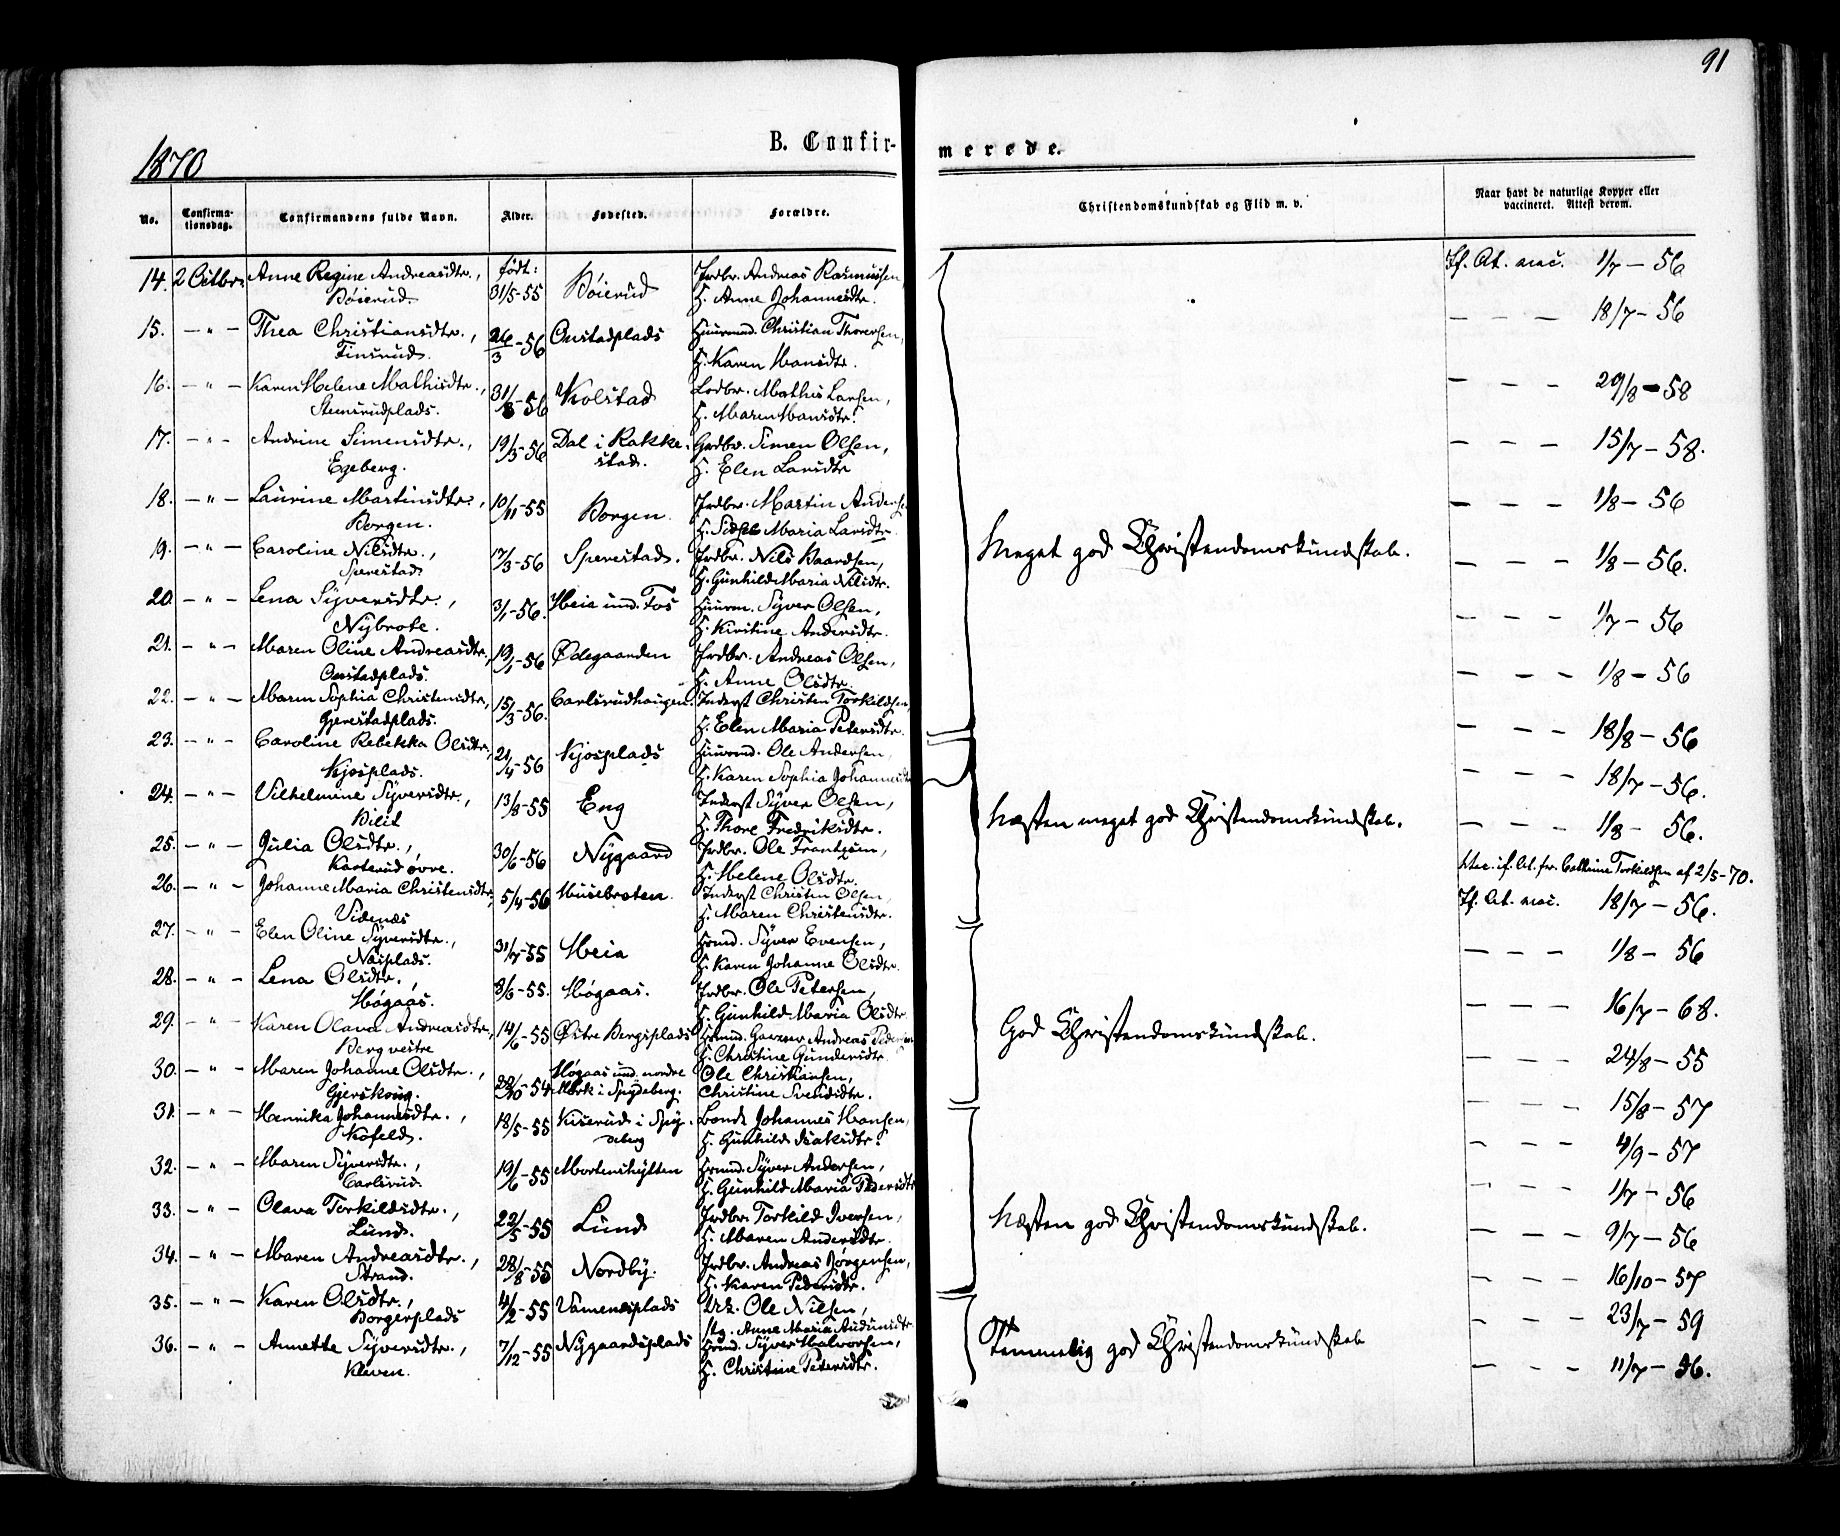 91
1870
B. Confir-
merede.
No. Confirma-tionsdag. Confirmandens fulde Navn. Alder. Fødested. Forældre. Christendomskundskab og Flid m. v. Naar havt de naturlige Kopper eller vaccineret. Attest derom.
14. 2 Octbr. Anne Regine Andreasdtr., født: Bøierud Grdbr. Andreas Rasmussen, If. At. vac. 1/7 - 56
Bøierud. 31/5-55 H. Anne Johannesdtr.
15. - " - Thea Christiansdtr., 26/3-56 Onstadplads Huusmd. Christian Thoresen, - - - 18/7 - 56
Finsrud. H. Karen Hansdtr.
16. - " - Karen Helene Mathisdtr., 31/8-56 Kolstad Lodbr. Mathis Larsen, - - - 29/8 - 58
Stensrudplads. H. Maren Hansdtr.
17. - " - Andrine Simensdtr., 19/3-56 Dal i Rakke- Grdbr. Simen Olsen, - - - 15/7 - 58.
Egeberg. stad. H. Elen Larsdtr
18. - " - Laurine Martinsdtr., 10/11-55 Borgen. Grdbr. Martin Anderse - - - 1/8 - 56
Borgen. H. Sidsel Maria Larsdtr.
Meget god Christendomskundskab.
19. - " - Caroline Nilsdtr., 17/3-56 Sperestad. Grdbr. Nils Baardsen, - - - 1/8 - 56.
Sperestad H. Gunhild Maria Nilsdtr.
20. - " - Lena Syversdtr., 3/1-56. Heia und. Fos Huusm. Syver Olsen, - - - 1/7 - 56
Nybrote. H. Kirstine Andersdtr.
21. - " - Maren Oline Andreasdtr., 19/1-56 Ødegaarden Grdbr. Andreas Olsen, - - - 1/8 - 56
Onstadplads. H. Anne Olsdtr.
22. - " - Maren Sophia Christensdtr., 15/3-56. Carlsrudhaugen. Inderst Christen Torkildsen, - - - 18/8 - 56
Gjerestadplads. H. Elen Maria Petersdtr.
23. - " - Caroline Rebekka Olsdtr., 21/4-56 Kjosplads Huusmd. Ole Andersen, - - - 18/7 - 56.
Kjosplads. H. Karen Sophia Johannesdtr
24. - " - Vilhelmine Syversdtr., 13/8-55 Eng Inderst Syver Olsen, - - - 1/8 - 56.
Bilit H. Thore Fredriksdtr.
Næsten meget god Christendomskundskab.
25. - " - Julia Olsdtr., 30/6-56 Nygaard Grdbr. Ole Frantzsen, Vac. if. At. fr. Cathrine Torkildsen af 2/5-70.
Karterud øvre. H. Helene Olsdtr.
26. - " - Johanne Maria Christensdtr., 5/4-56 Husebraten. Inderst Christen Olsen, If. At. vac. 18/7 - 56.
Videnæs H. Maren Christensdtr.
27. - " - Elen Oline Syversdtr., 31/7-55 Heia Hsmd. Syver Evensen, - - - 1/8 - 56
Næsplads. H. Karen Johanne Olsdtr.
28. - " - Lena Olsdtr., 8/6-55. Høgaas. Grdbr. Ole Petersen, - - - 16/7 - 68.
Høgaas. H. Gunhild Maria Olsdtr.
God Christendomskundskab.
29. - " - Karen Olava Andreasdtr., 14/6-55 Østre Bergsplads Hsmd. Andreas Pedersen - - - 24/8 - 55
Berg vestre H. Christine Gundersdtr.
30. - " - Maren Johanne Olsdtr., 22/10-54 Høgaas und. nordre Ole Christiansen, - - - 15/8 - 57
Gjerskoug. Mørk i Spydeberg. Christine Svendsdtr.
31. - " - Henrika Johannesdtr., 18/5-55 Kiserud i Spy- Bonde Johannes Hansen, - - - 4/9 - 57
Kofeld. deberg H. Gunhild Isaksdtr.
32. - " - Maren Syversdtr., 19/6-55 Mortenshytten Hsmd. Syver Andersen, - - - 1/7 - 56
Carlsrud. H. Gunhild Maria Pedersdtr
33. - " - Olava Torkildsdtr., 22/5-55 Lund Grdbr. Torkild Iversen, - - - 9/7 - 56
Lund. H. Maren Andersdtr.
Næsten god Christendomskundskab.
34. - " - Maren Andreasdtr., 28/8-55 Nordby. Grdbr. Andreas Jørgensen, - - - 16/10 - 57
Strand. H. Karen Pedersdtr.
35. - " - Karen Olsdtr., 4/2-55 Vamenesplads Urk. Ole Nilsen, - - - 23/7 - 59
Borgerplads Pig. Anne Maria Audunsdtr
36. - " - Annette Syversdtr., 7/12-55 Nygaardsplads Hsmd. Syver Halvorsen, - - - 11/7 - 56.
Kleven. H. Christine Petersdtr.
Temmelig god Christendomskundskab